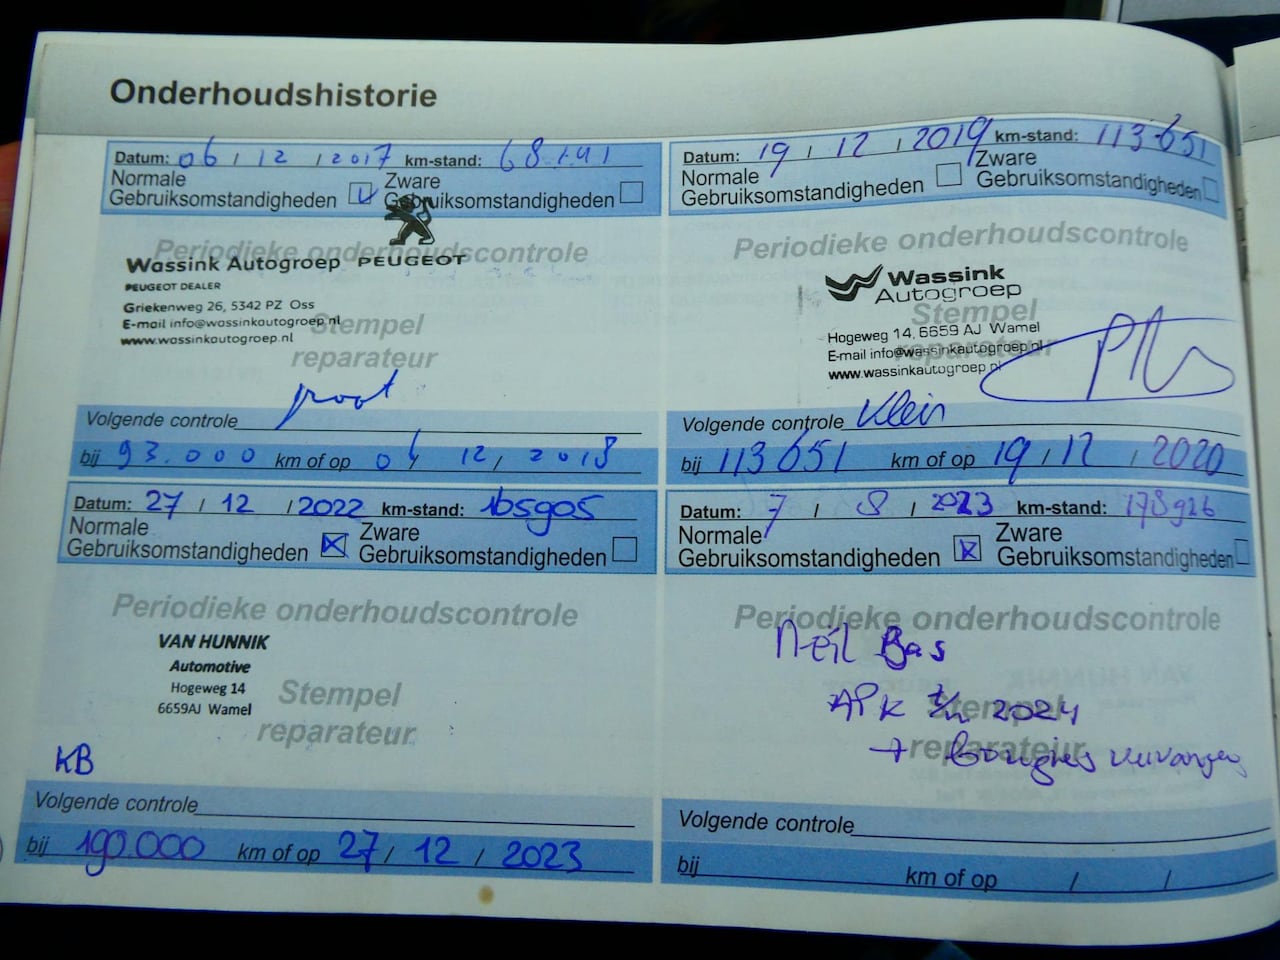 Onderhoudshistorie
Datum: 06 / 12 / 2017 km-stand:
Normale Gebruiksomstandigheden Zware Gebruiksomstandigheden
Periodieke onderhoudscontrole
Wassink Autogroep PEUGEOT
PEUGEOT DEALER
Griekenweg 26, 5342 PZ Oss
E-mail info@wassinkautogroep.nl
www.wassinkautogroep.nl
Stempel
reparateur
groot
Volgende controle
bij 93.000 km of op 12 / 2018
Datum: 19 / 12 / 2019 km-stand: 113651
Normale Gebruiksomstandigheden Zware Gebruiksomstandigheden
Periodieke onderhoudscontrole
Wassink
Autogroep
Stempel
Hogeweg 14, 6659 AJ Wamel
reparateur
E-mail info@wassinkautogroep.nl
www.wassinkautogroep.nl
Volgende controle Klein
bij 113651 km of op 19 / 12 / 2020
Datum: 27 / 12 / 2022 km-stand: 165905
Normale Gebruiksomstandigheden Zware Gebruiksomstandigheden
Periodieke onderhoudscontrole
VAN HUNNIK
Automotive
Hogeweg 14
6659AJ Wamel
Stempel
reparateur
KB
Volgende controle
bij 190.000 km of op 27 / 12 / 2023
Datum: 7 / 8 / 2023 km-stand: 178926
Normale Gebruiksomstandigheden Zware Gebruiksomstandigheden
Periodieke onderhoudscontrole
Neil Bas
Stempel
APK 2024
reparateur
Volgende controle
bij km of op / /